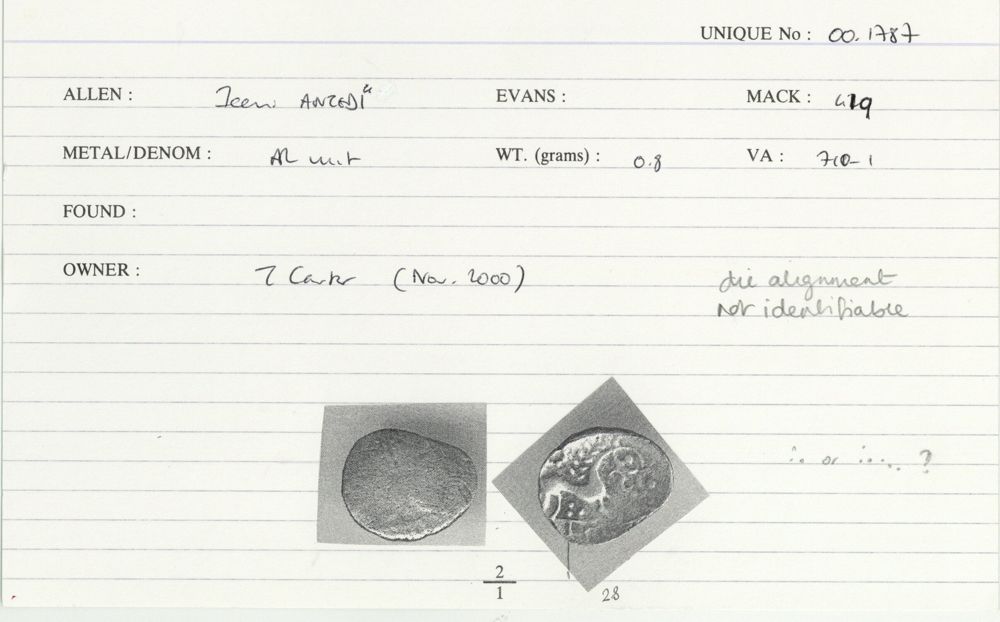 UNIQUE No : 00.1787
ALLEN : Iceni ANTEDI EVANS : MACK : 419
METAL/DENOM : AR unit WT. (grams) : 0.8 VA : 710-1
FOUND :
OWNER : T Carter (Nov. 2000) die alignment
not identifiable
or ?
2
1
28